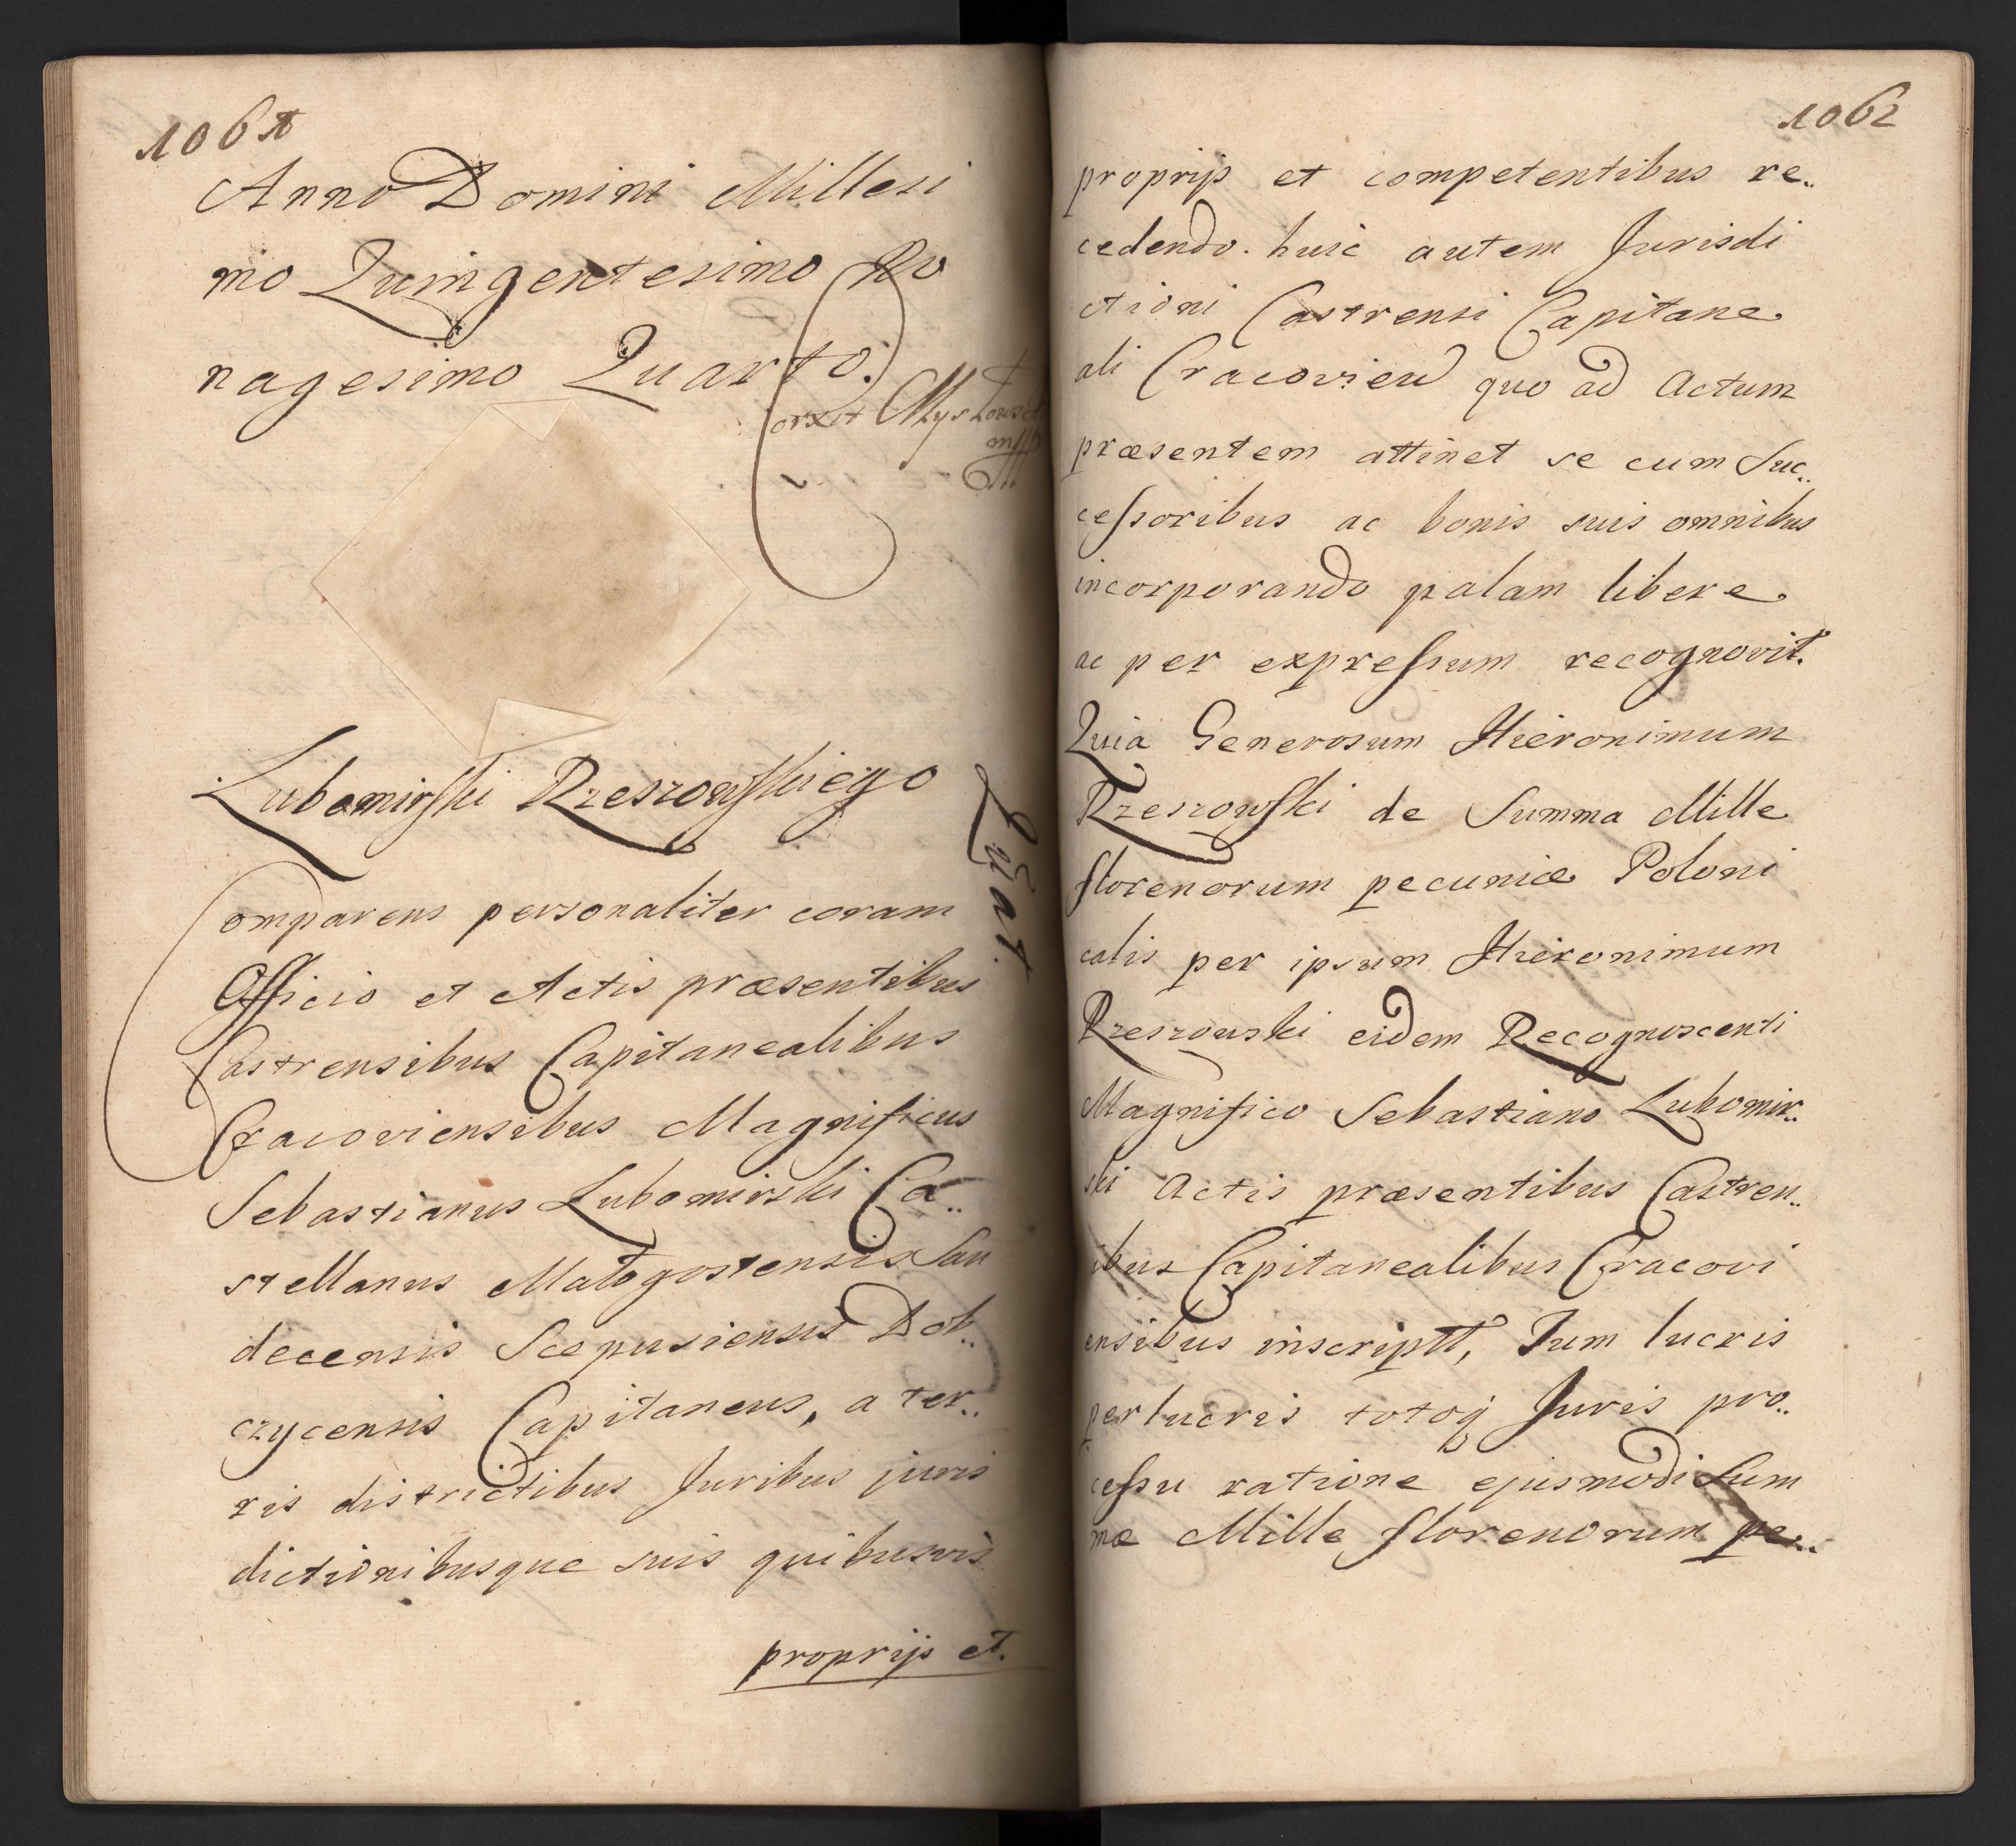 1061
Anno Domini Millesi
mo Quingentesimo No
nagesimo Quarto.
Lubomirski Rzeszowskiego
Comparens personaliter coram
Officio et Actis præsentibus
Castrensibus Capitanealibus
Cracoviensibus Magnificus
Sebastianus Lubomirski Ca..
stellanus Malogostensis San
decensis Scepusiensis Dob..
czycensis Capitaneus, a ter..
ris districtibus Juribus juris
dictionibusque suis quibusvis
proprijs et.
1062
proprijs et competentibus re..
cedendo. huic autem Jurisdi
ctioni Castrensi Capitane
ali Cracovien quo ad Actum
præsentem attinet se cum Suc..
cessoribus ac bonis suis omnibus
incorporando palam libere
ac per expressum recognovit.
Quia Generosum Hieronimum
Rzeszowski de Summa Mille
florenorum pecuniæ Poloni
calis per ipsum Hieronimum
Rzeszowski eidem Recognoscenti
Magnifico Sebastiano Lubomir..
ski Actis præsentibus Castren..
ibus Capitanealibus Cracovi
ensibus inscriptt, Tum lucris
perlucris totoq Juris pro..
cessu ratione ejusmodi Sum
mæ Mille florenorum pe..